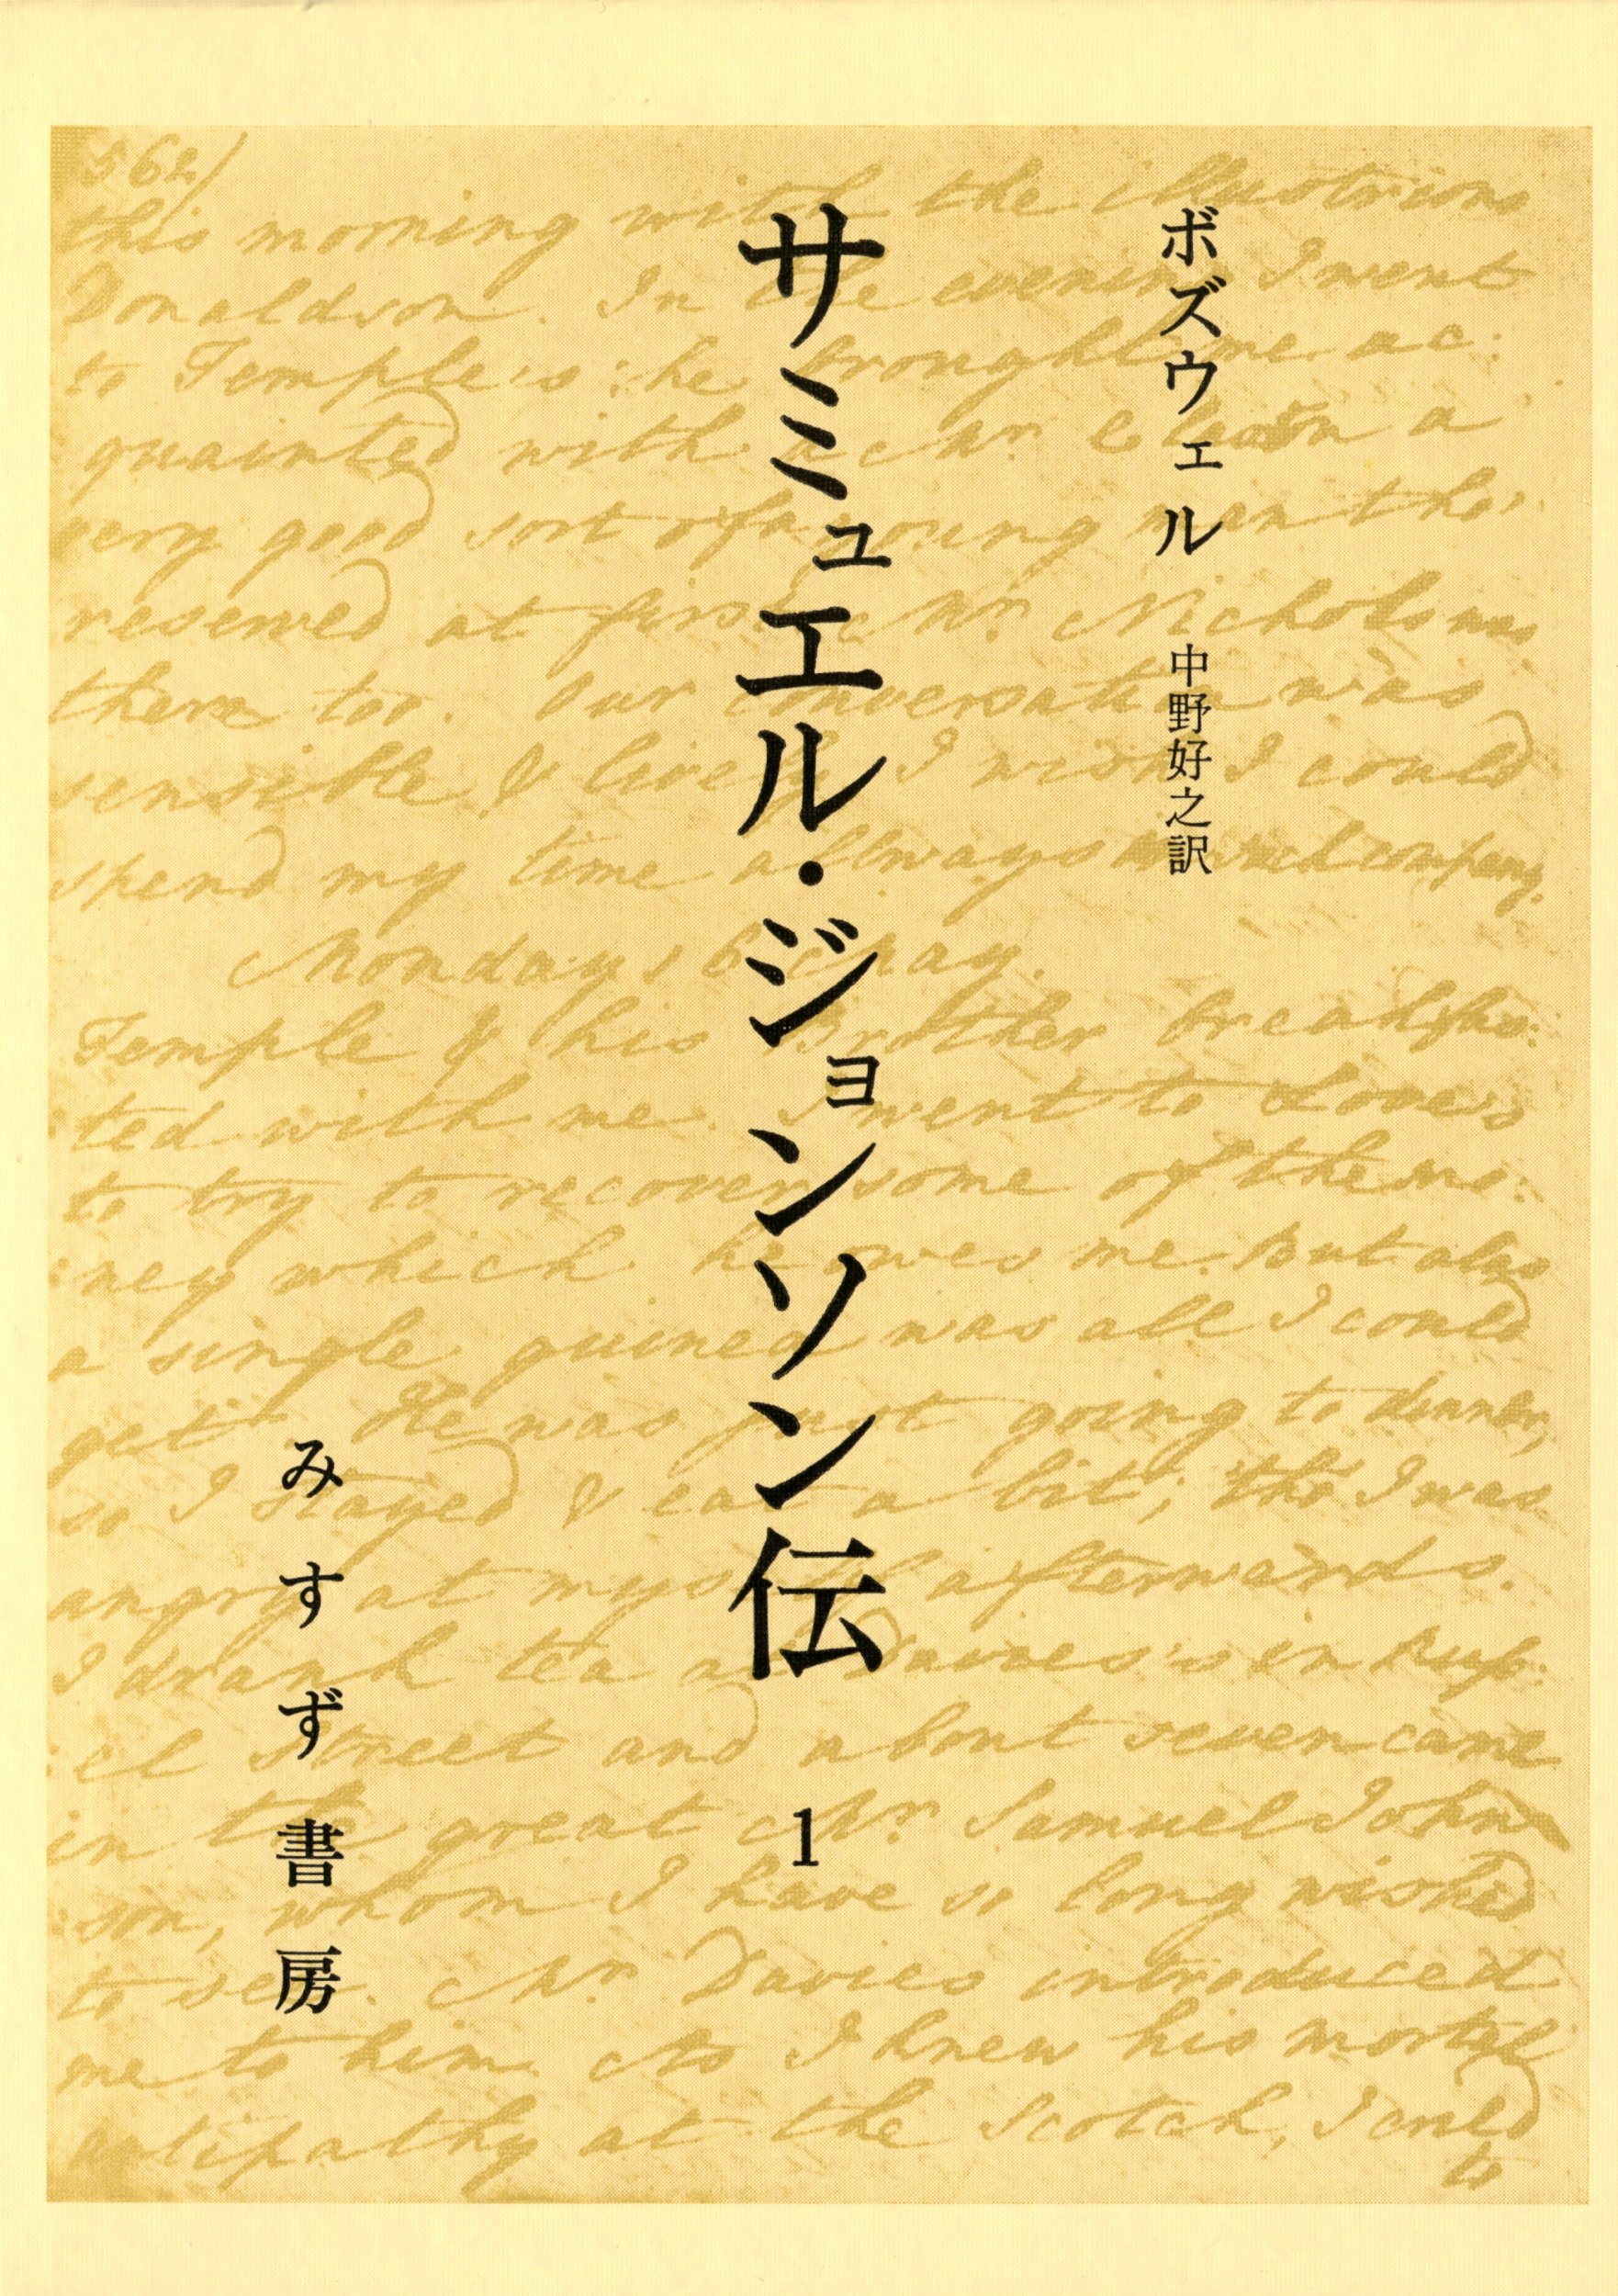 ボズウェル 中野好之訳
サミュエル・ジョンソン伝 1
みすず書房
562
this morning with the illustrious
Donaldson. In the evening I went
to Temple's: he brought me ac:
quainted with a Mr. a
very good sort of a young man tho'
reserved at first. Mr. Nichols was
there too. Our conversation was
sensible & lively. I wish I could
spend my time allways in such company.
Monday 16 May.
Temple & his Brother breakfas:
:ted with me. I went to Love's
to try to recover some of the mo:
:ney which he owes me. But alas
a single guinea was all I could
get. He was just going to dinner,
so I stayed & eat a bit; tho' I was
angry at myself afterwards.
I drank tea at Davies's in Russ:
:el Street and about seven came
in the great Mr. Samuel John
:son, whom I have so long wished
to see. Mr. Davies introduced
me to him. As I knew his mortal
antipathy at the Scotch, I cried
to